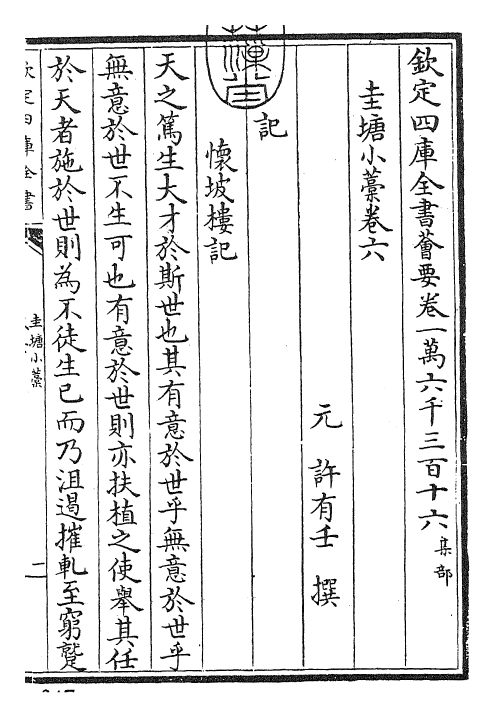 欽定四庫全書薈要卷一萬六千三百十六 集部
圭塘小藁卷六
元 許有壬 撰
記
懷坡樓記
天之篤生大才於斯世也其有意於世乎無意於世乎
無意於世不生可也有意於世則亦扶植之使舉其任
於天者施於世則為不徒生已而乃沮遏摧軋至窮蹙
欽定四庫全書
圭塘小藁
二